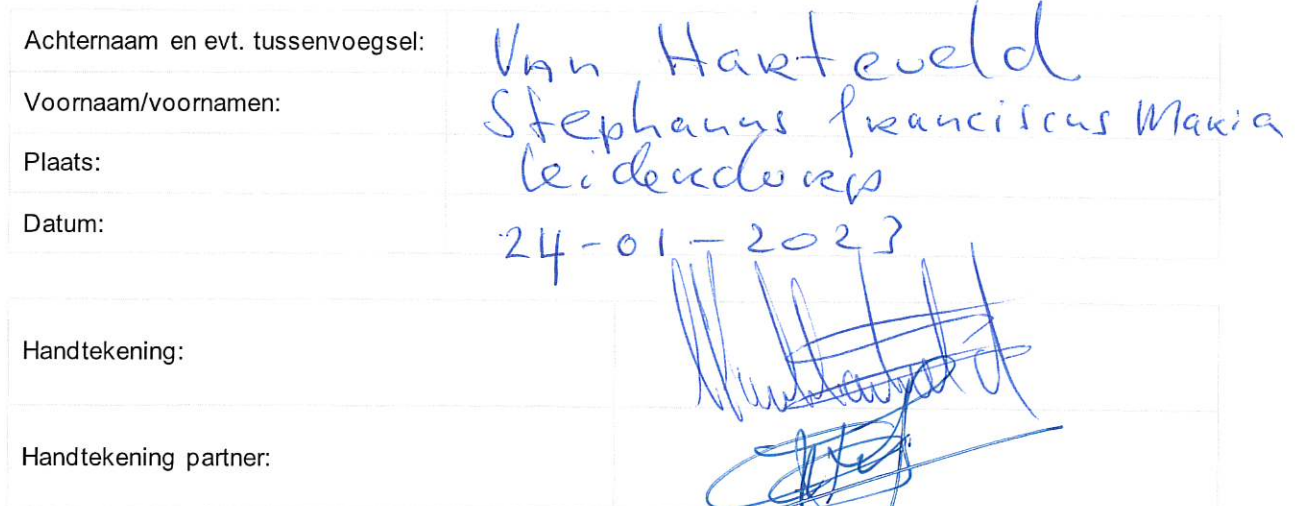 Achternaam en evt. tussenvoegsel: Van Harteveld
Voornaam/voornamen: Stephanus Franciscus Maria
Plaats: Leiderdorp
Datum: 24-01-2023
Handtekening:
Handtekening partner: